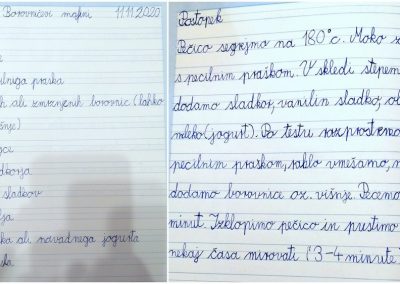 Borovničevi mafini 11.11.2020
e
ilnega praška
ih ali zmrznjenih borovnic (lahko
šnje)
jce
dkorja
sladkov
lja
ka ali navadnega jogurta
Postopek
Pečico segrejmo na 180°C. Moko z
s pecilnim praškom. V skledi stepem
dodamo sladkor, vanilin sladkor, ol
mleko (jogurt). Po testu razprostremo
pecilnim praškom, rahlo vmešamo, n
dodamo borovnice oz. višnje. Pečemo
minut. Izklopimo pečico in pustimo
nekaj časa mirovati (3-4 minute